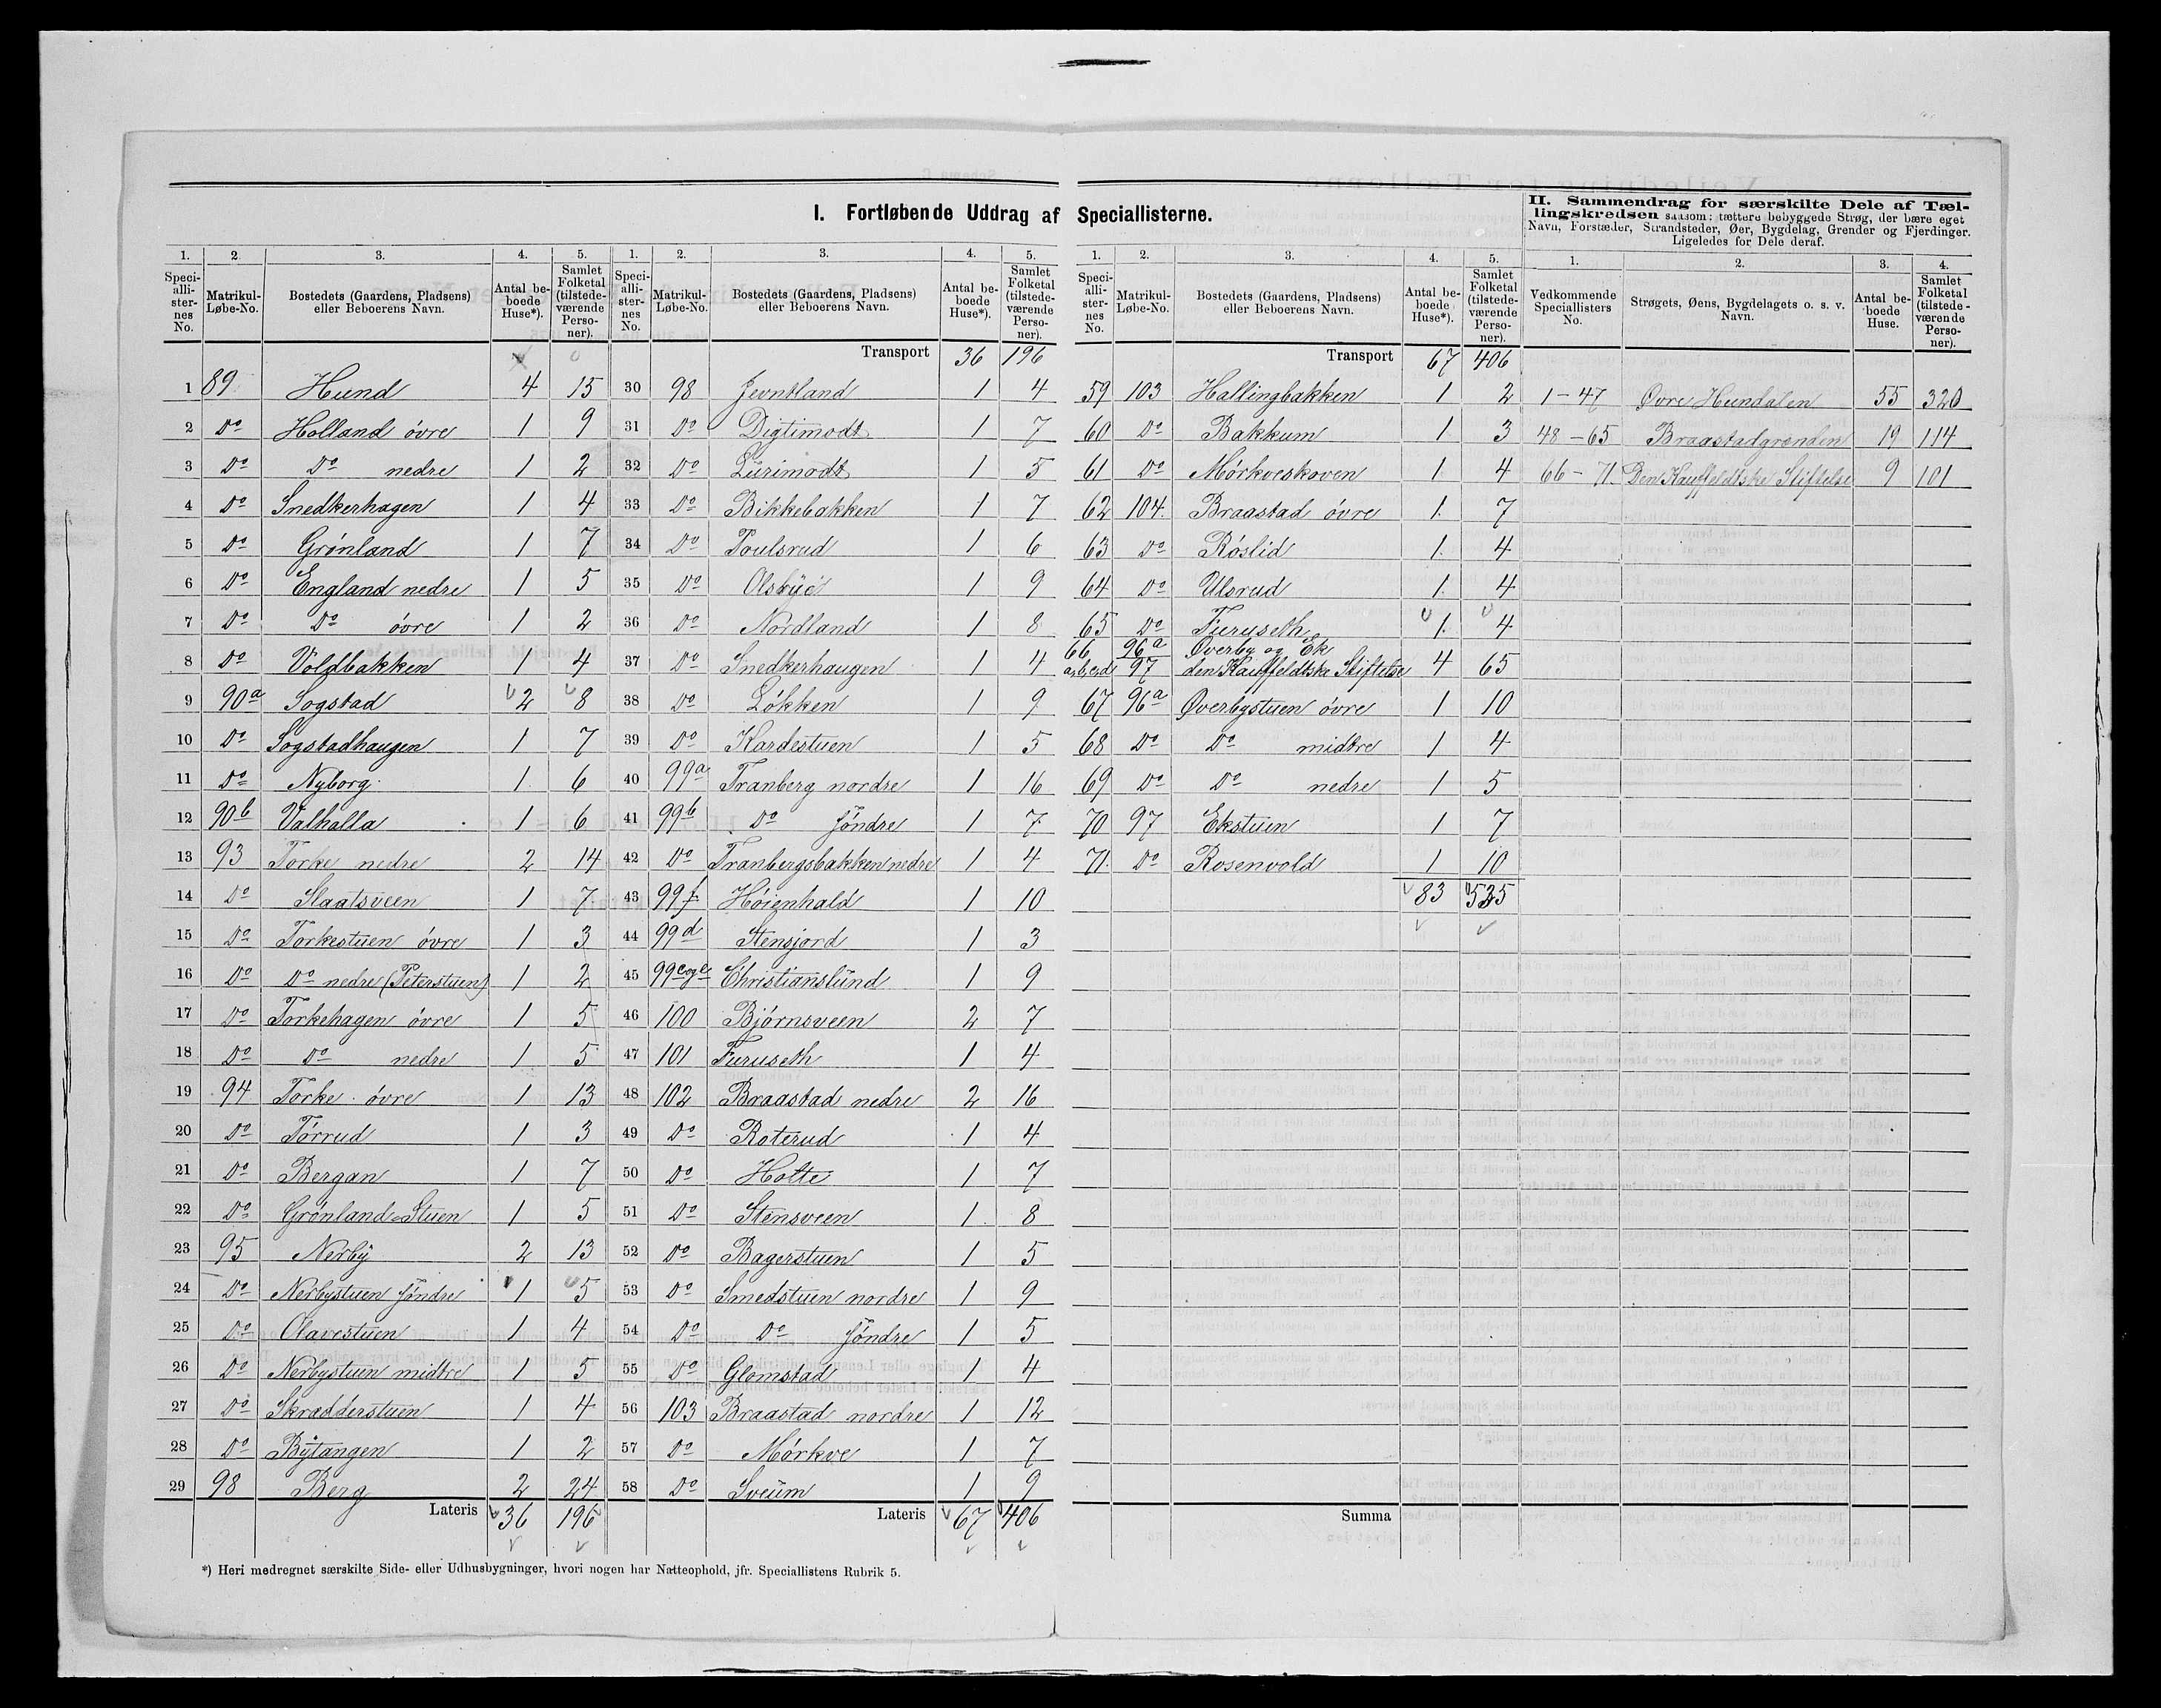 I. Fortløbende Uddrag af Speciallisterne.
II. Sammendrag for særskilte Dele af Tællingskredsen saasom: tættere bebyggede Strøg, der bære eget Navn, Forstæder, Strandsteder, Øer, Bygdelag, Grender og Fjerdinger. Ligeledes for Dele deraf.
1. 2. 3. 4. 5. 1. 2. 3. 4. 5.
Speciallisternes No. Matrikul-Løbe-No. Bostedets (Gaardens, Pladsens) eller Beboerens Navn. Antal beboede Huse*). Samlet Folketal (tilstedeværende Personer).
1 89 Hund 4 15
2 Do Holland övre 1 9
3 Do Do nedre 1 2
4 Do Snedkerhagen 1 4
5 Do Grønland 1 7
6 Do England nedre 1 5
7 Do Do övre 1 2
8 Do Voldbakken 1 4
9 90a Sogstad 2 8
10 Do Sogstadhaugen 1 7
11 Do Nyborg 1 6
12 90b Valhalla 1 6
13 93 Torke nedre 2 14
14 Do Slaatsveen 1 7
15 Do Torkestuen övre 1 3
16 Do Do nedre (Peterstuen) 1 2
17 Do Torkehagen övre 1 5
18 Do Do nedre 1 5
19 94 Torke övre 1 13
20 Do Törrud 1 3
21 Do Bergan 1 7
22 Do Grønland-Stuen 1 5
23 95 Nerby 2 13
24 Do Nerbystuen söndre 1 5
25 Do Olavestuen 1 4
26 Do Nerbystuen midtre 1 5
27 Do Skrædderstuen 1 4
28 Do Bytangen 1 2
29 98 Berg 2 24
Lateris 36 196
Speciallisternes No. Matrikul-Løbe-No. Bostedets (Gaardens, Pladsens) eller Beboerens Navn. Antal beboede Huse*). Samlet Folketal (tilstedeværende Personer).
Transport 36 196
30 98 Jevntland 1 4
31 Do Digtimodt 1 7
32 Do Lurimodt 1 5
33 Do Bikkebakken 1 7
34 Do Poulsrud 1 6
35 Do Olsbye 1 9
36 Do Nordland 1 8
37 Do Snedkerhaugen 1 4
38 Do Løkken 1 9
39 Do Kardestuen 1 5
40 99a Tranberg nordre 1 16
41 99b Do söndre 1 7
42 Do Tranbergsbakken nedre 1 4
43 99f Høienhald 1 10
44 99d Stensjord 1 3
45 99c og e Christianslund 1 9
46 100 Bjørnsveen 2 7
47 101 Furuseth 1 4
48 102 Braastad nedre 2 16
49 Do Roterud 1 4
50 Do Holte 1 7
51 Do Stensveen 1 8
52 Do Bagerstuen 1 5
53 Do Smedstuen nordre 1 9
54 Do Do söndre 1 5
55 Do Glomstad 1 4
56 103 Braastad nordre 1 12
57 Do Mørkve 1 7
58 Do Sveum 1 9
Lateris 67 406
1. 2. 3. 4. 5.
Speciallisternes No. Matrikul-Løbe-No. Bostedets (Gaardens, Pladsens) eller Beboerens Navn. Antal beboede Huse*). Samlet Folketal (tilstedeværende Personer).
Transport 67 406
59 103 Hallingbakken 1 2
60 Do Bakkum 1 3
61 Do Mørkveskoven 1 4
62 104 Braastad övre 1 7
63 Do Røslid 1 4
64 Do Ulsrud 1 4
65 Do Furuseth 1 4
66 96a Øverby og Ek
a,b,c,d 97 den Kauffeldtske Stiftelse 4 65
67 96a Øverbystuen övre 1 10
68 Do Do midtre 1 4
69 Do Do nedre 1 5
70 97 Ekstuen 1 7
71 Do Rosenvold 1 10
83 535
Summa
1. 2. 3. 4.
Vedkommende Speciallisters No. Strøgets, Øens, Bygdelagets o. s. v. Navn. Antal beboede Huse. Samlet Folketal (tilstedeværende Personer).
1-47 Øvre Hundalen 55 320
48-65 Braastadgrenden 19 114
66-71 Den Kauffeldtske Stiftelse 9 101
*) Heri medregnet særskilte Side- eller Udhusbygninger, hvori nogen har Natteophold, jfr. Speciallistens Rubrik 5.